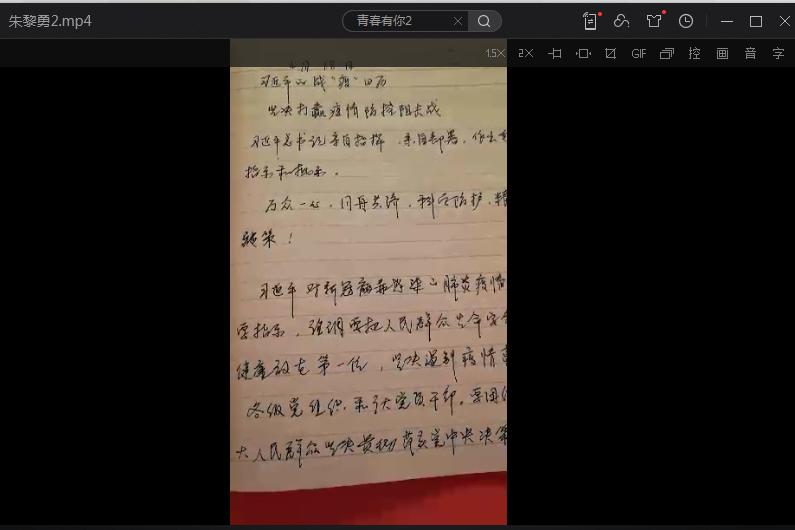 朱黎勇2.mp4
青春有你2
1.5× 2× GIF 控 画 音 字
习近平的战"疫"日历
坚决打赢疫情防控阻击战
习近平总书记亲自指挥、亲自部署,作出重
指示和批示。
万众一心,同舟共济,科学防护,精
施策!
习近平对新冠病毒感染的肺炎疫情
要指示,强调要把人民群众生命安全
健康放在第一位,坚决遏制疫情蔓
各级党组织和广大党员干部,要团结
大人民群众坚决贯彻落实党中央决策